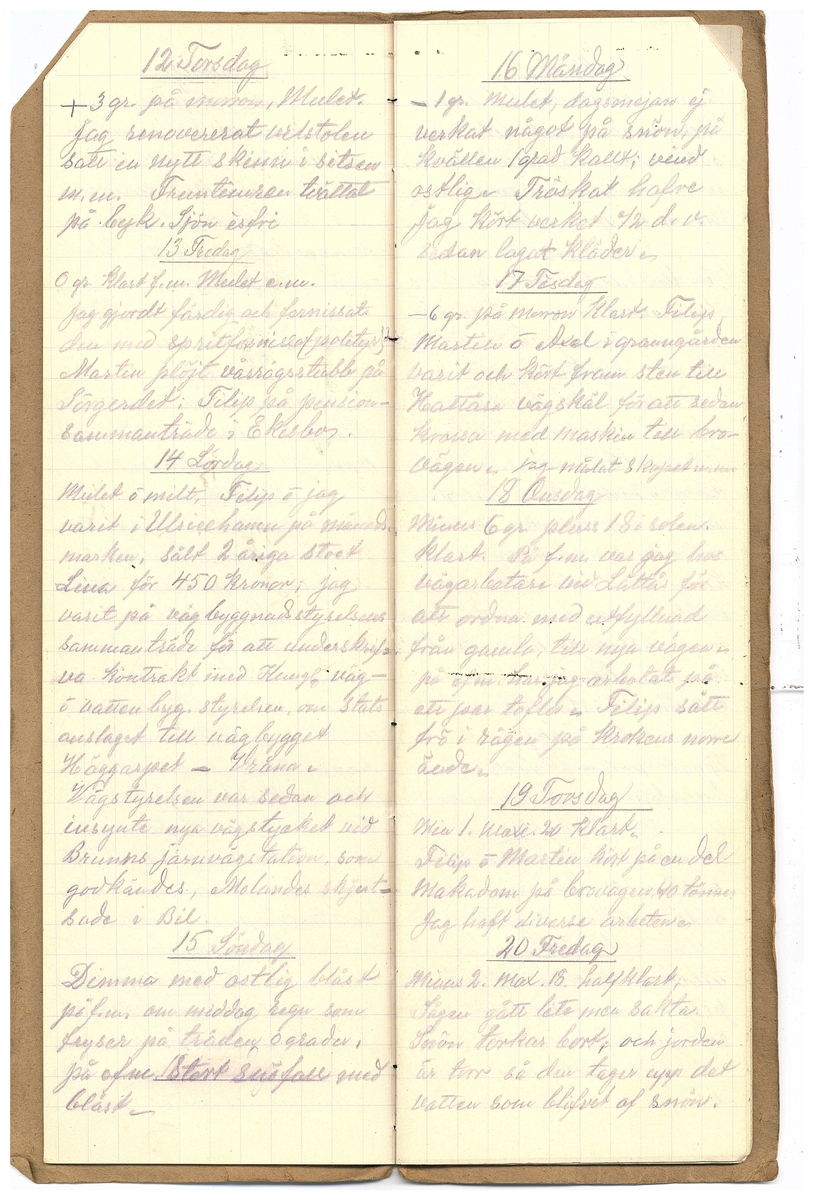 12 Torsdag
+ 3 gr. på morron, Mulet.
Jag renovererat vilstolen
satt in nytt skinn i sitsen
m.m. Fruntimren tvättat
på byk. Sjön isfri
13 Fredag
0 gr. klart f.m. Mulet e.m.
Jag gjordt färdig och fernissat
den med spritfernissa (polityr)
Martin plöjt vårrågsstubb på
Sörgerdet; Filip på pension-
sammanträde i Ekesbo.
14 Lördag
Mulet ö milt, Filip ö jag
varit i Ulricehamn på månads
marken, sålt 2 åriga stoet
Lina för 450 kronor; jag
varit på vägbyggnadsstyrelsens
sammanträde för att underskrif-
va kontrakt med Kungl. väg-
ö vattenbyg. styrelsen, om stats
anslaget till vägbygget
Häggarpet - Vråna.
Vägstyrelsen var sedan och
insynte nya vägstycket vid
Brunns järnvägstation, som
godkändes, Molander skjut-
sade i Bil.
15 Söndag
Dimma med ostlig blåst
på f.m. om middag regn som
fryser på träden 0 grader,
på efm. Stort Snöfall med
blåst
16 Måndag
- 1 gr. Mulet, dagsmejan ej
verkat något på snön, på
kvällen 1 grad kallt; vind
ostlig. Tröskat hafre
jag kört verket 1/2 d. v.
sedan lagat kläder.
17 Tisdag
- 6 gr. på morron klart. Filip
Martin ö Axel i granngården
varit och kört fram sten till
Hattåsa vägskäl för att sedan
krossa med maskin till bro-
vägen. jag målat skåpet m.m.
18 Onsdag
Minus 6 gr pluss 18 i solen.
klart. På f.m. var jag hos
vägarbetare vid Låttås för
att ordna med utfyllnad
från gamla, till nya vägen.
på efm. har jag arbetat på
ett par tofflor. Filip sått
frö i rågen på Krokens norre
ände.
19 Torsdag
Min 1. max. 20 klart.
Filip ö Martin kört på en del
Makadam på brovägen, 40 tunnor
Jag haft diverse arbeten.
20 Fredag
Minus 2. Max. 18. halfklart,
Sågen gått lite men sakta.
Snön torkar bort; och jorden
är torr så den tager upp det
vatten som blifvit af snön.